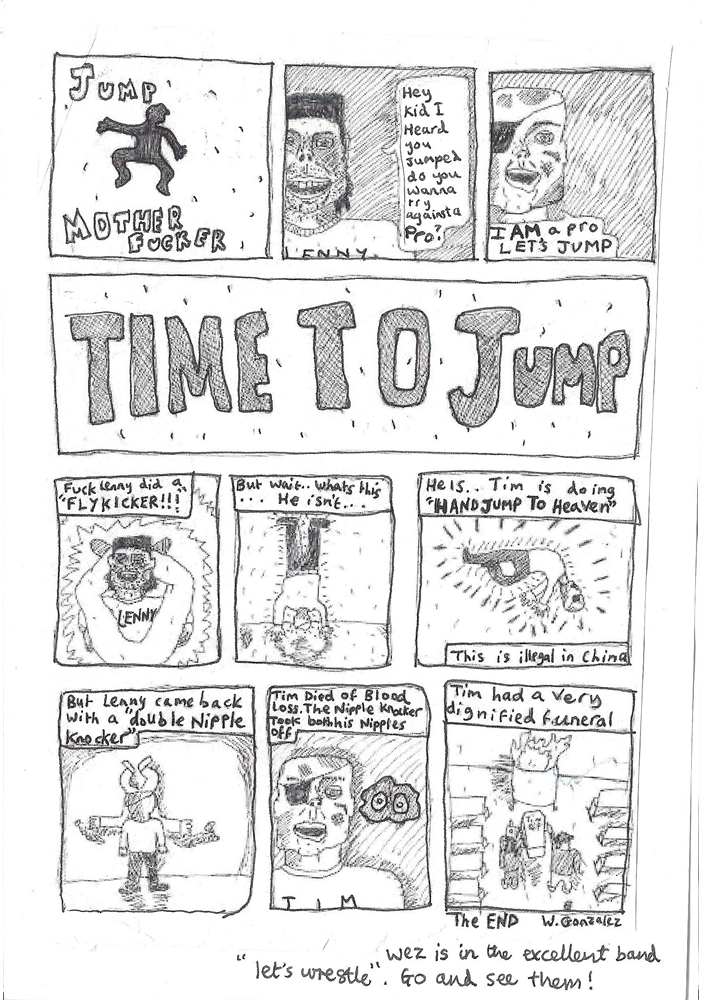 JUMP
MOTHER
FUCKER
Hey
Kid I
Heard
you
Jumped
do you
wanna
try
against a
Pro?
LENNY.
I AM a pro
LET'S JUMP
TIME TO JUMP
Fuck Lenny did a
"FLYKICKER!!!"
LENNY
But wait.. whats this
... He isn't...
He is... Tim is doing
"HANDJUMP TO Heaven"
This is illegal in China
But Lenny came back
with a "double Nipple
Knocker"
Tim Died of Blood
Loss. The Nipple Knocker
Took both his Nipples
off
TIM
Tim had a very
dignified funeral
The END W. Gonzalez
wez is in the excellent band
"let's wrestle". Go and see them!